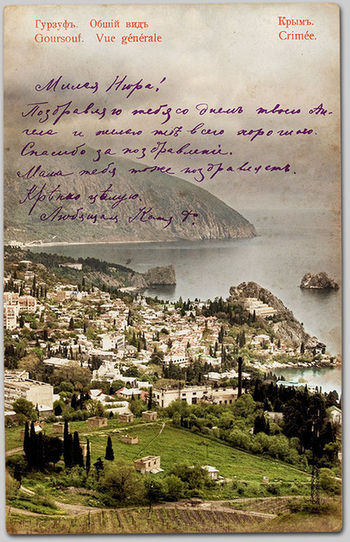 Гурзуфъ. Общій видъ Крымъ.
Goursouf. Vue générale Crimée.
Милая Нюра!
Поздравляю тебя со днемъ твоего Ан-
гела и желаю тебѣ всего хорошого.
Спасибо за поздравленіе.
Мама тебя тоже поздравляетъ.
Крѣпко цѣлую.
Любящая Катя